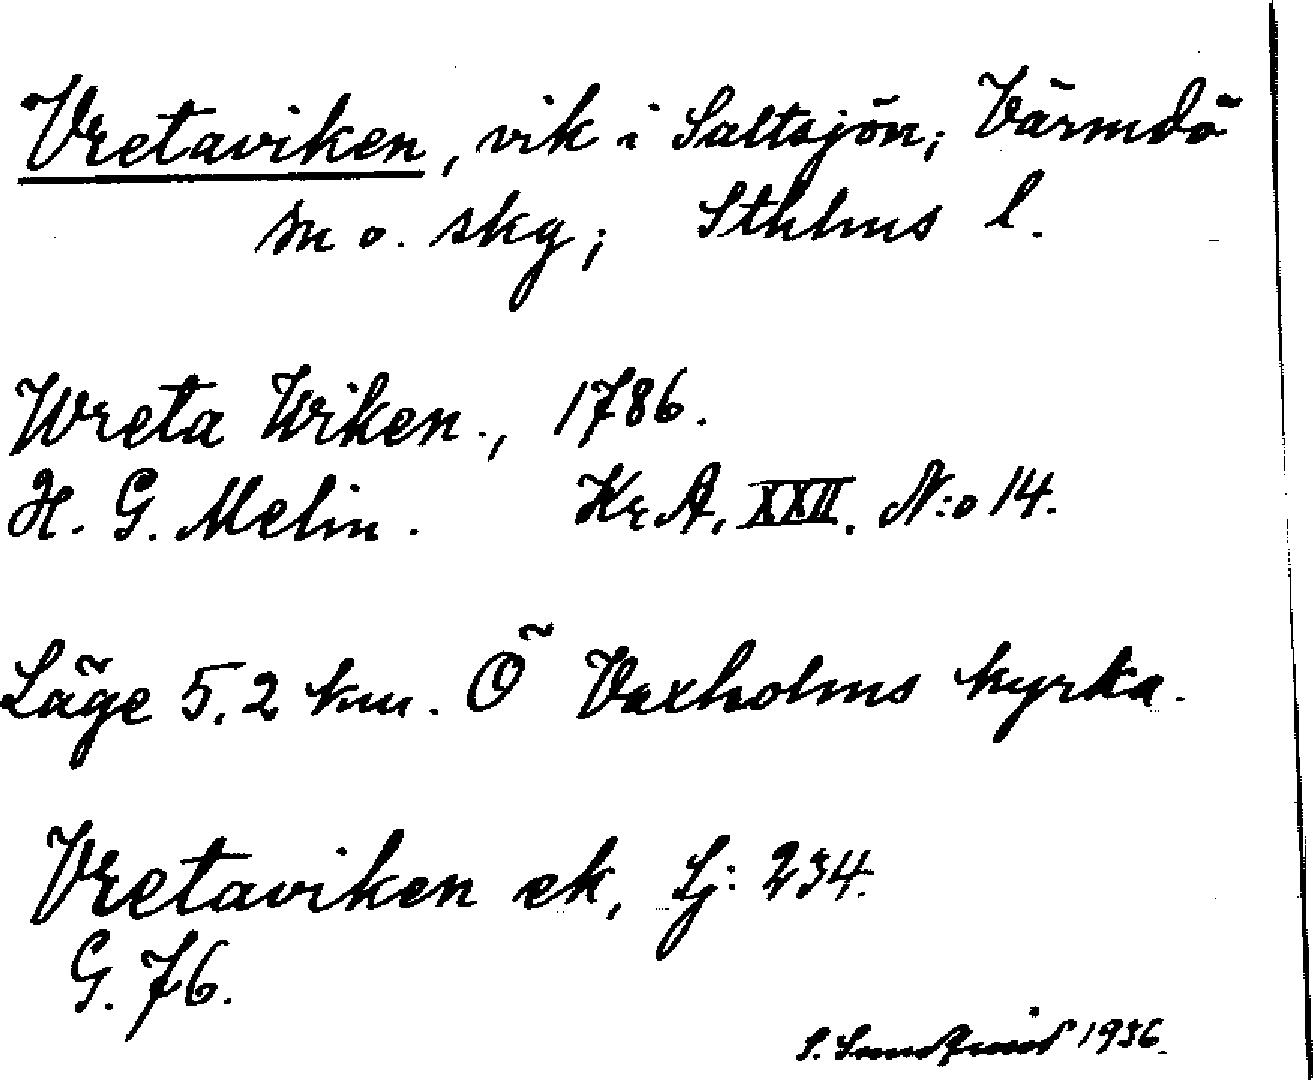 Vretaviken, vik i Saltsjön; Värmdö
sn o. skg; Sthlms l.
Wreta Wiken., 1786.
H. G. Melin. Kr A. XXII. N:o 14.
Läge 5,2 km. Ö Vaxholms kyrka.
Vretaviken ek, Lj: 234.
G. 76.
S. 1936.